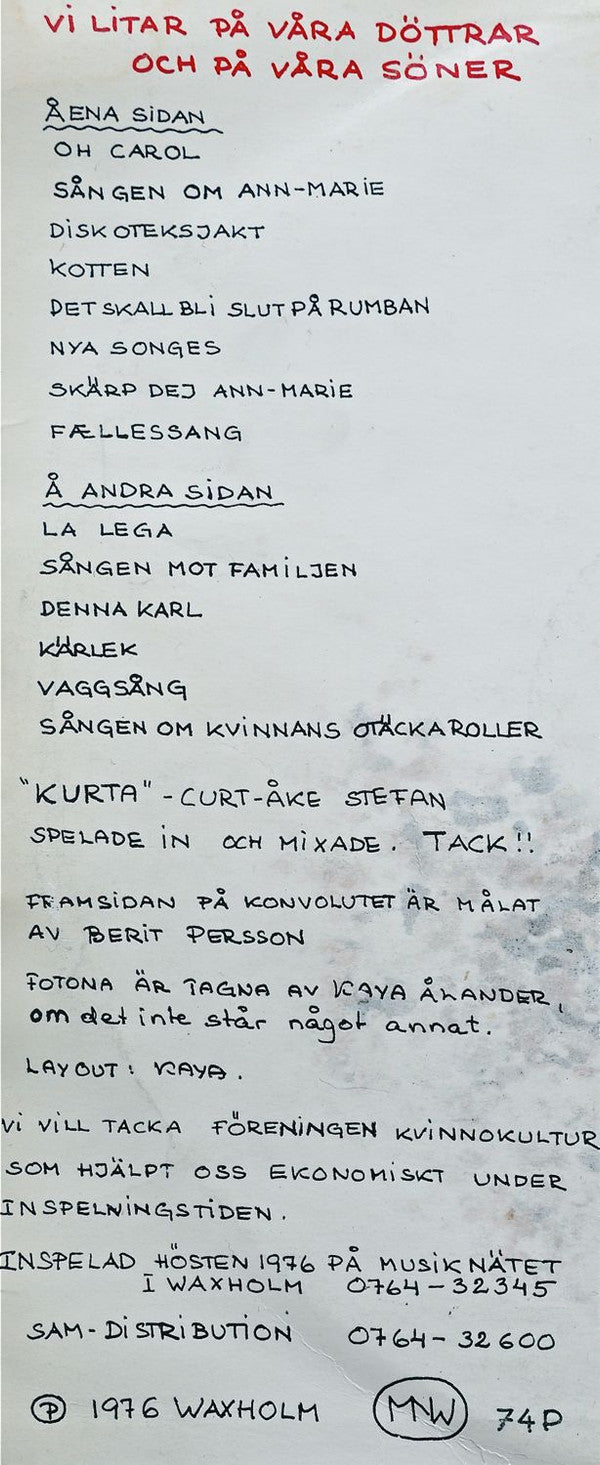 Vi LiTAR PÅ VÅRA DÖTTRAR
OCH PÅ VÅRA SÖNER
ÅENA SiDAN
OH CAROL
SÅNGEN OM ANN-MARiE
DiSKOTEKSJAKT
KOTTEN
DET SKALL BLi SLUT PÅ RUMBAN
NYA SONGES
SKÄRP DEJ ANN-MARiE
FÆLLESSANG
Å ANDRA SiDAN
LA LEGA
SÅNGEN MOT FAMiLJEN
DENNA KARL
KÄRLEK
VAGGSÅNG
SÅNGEN OM KViNNANS OTÄCKA ROLLER
"KURTA" - CURT-ÅKE STEFAN
SPELADE iN OCH MiXADE. TACK!!
FRAMSiDAN PÅ KONVOLUTET ÄR MÅLAT
AV BERiT PERSSON
FOTONA ÄR TAGNA AV KAYA ÅLANDER,
om det inte står något annat.
LAYOUT: KAYA.
Vi ViLL TACKA FÖRENiNGEN KViNNOKULTUR
SOM HJÄLPT OSS EKONOMiSKT UNDER
INSPELNiNGSTiDEN.
INSPELAD HÖSTEN 1976 PÅ MUSiKNÄTET
I WAXHOLM 0764-32345
SAM-DiSTRiBUTiON 0764-32600
Ⓟ 1976 WAXHOLM MNW 74P